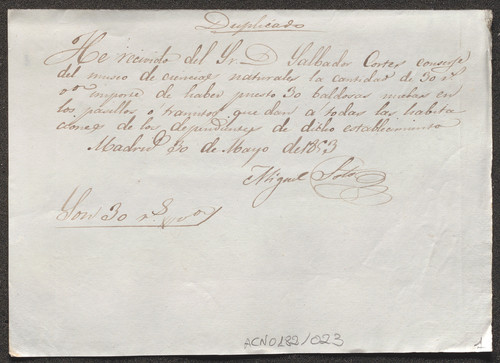 Duplicado
He recivido del Sr. D. Salbador Cortes conserje
del museo de ciencias naturales la cantidad de 30 rs
von importe de haber puesto 30 baldosas nuebas en
los pasillos ó transitos que dan a todas las habita
ciones de los dependientes de dicho establecimiento
Madrid 30 de Mayo de 1853
Miguel Soto
Son 30 rs von
ACN0182/023